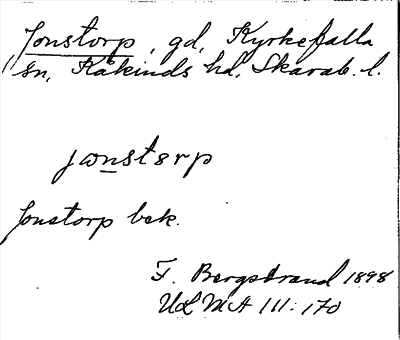 Jonstorp, gd, Kyrkefalla
sn, Kåkinds hd, Skarab. l.
jωnstɘrp
Jonstorp bek.
F. Bergstrand 1898
ULMA 111:170